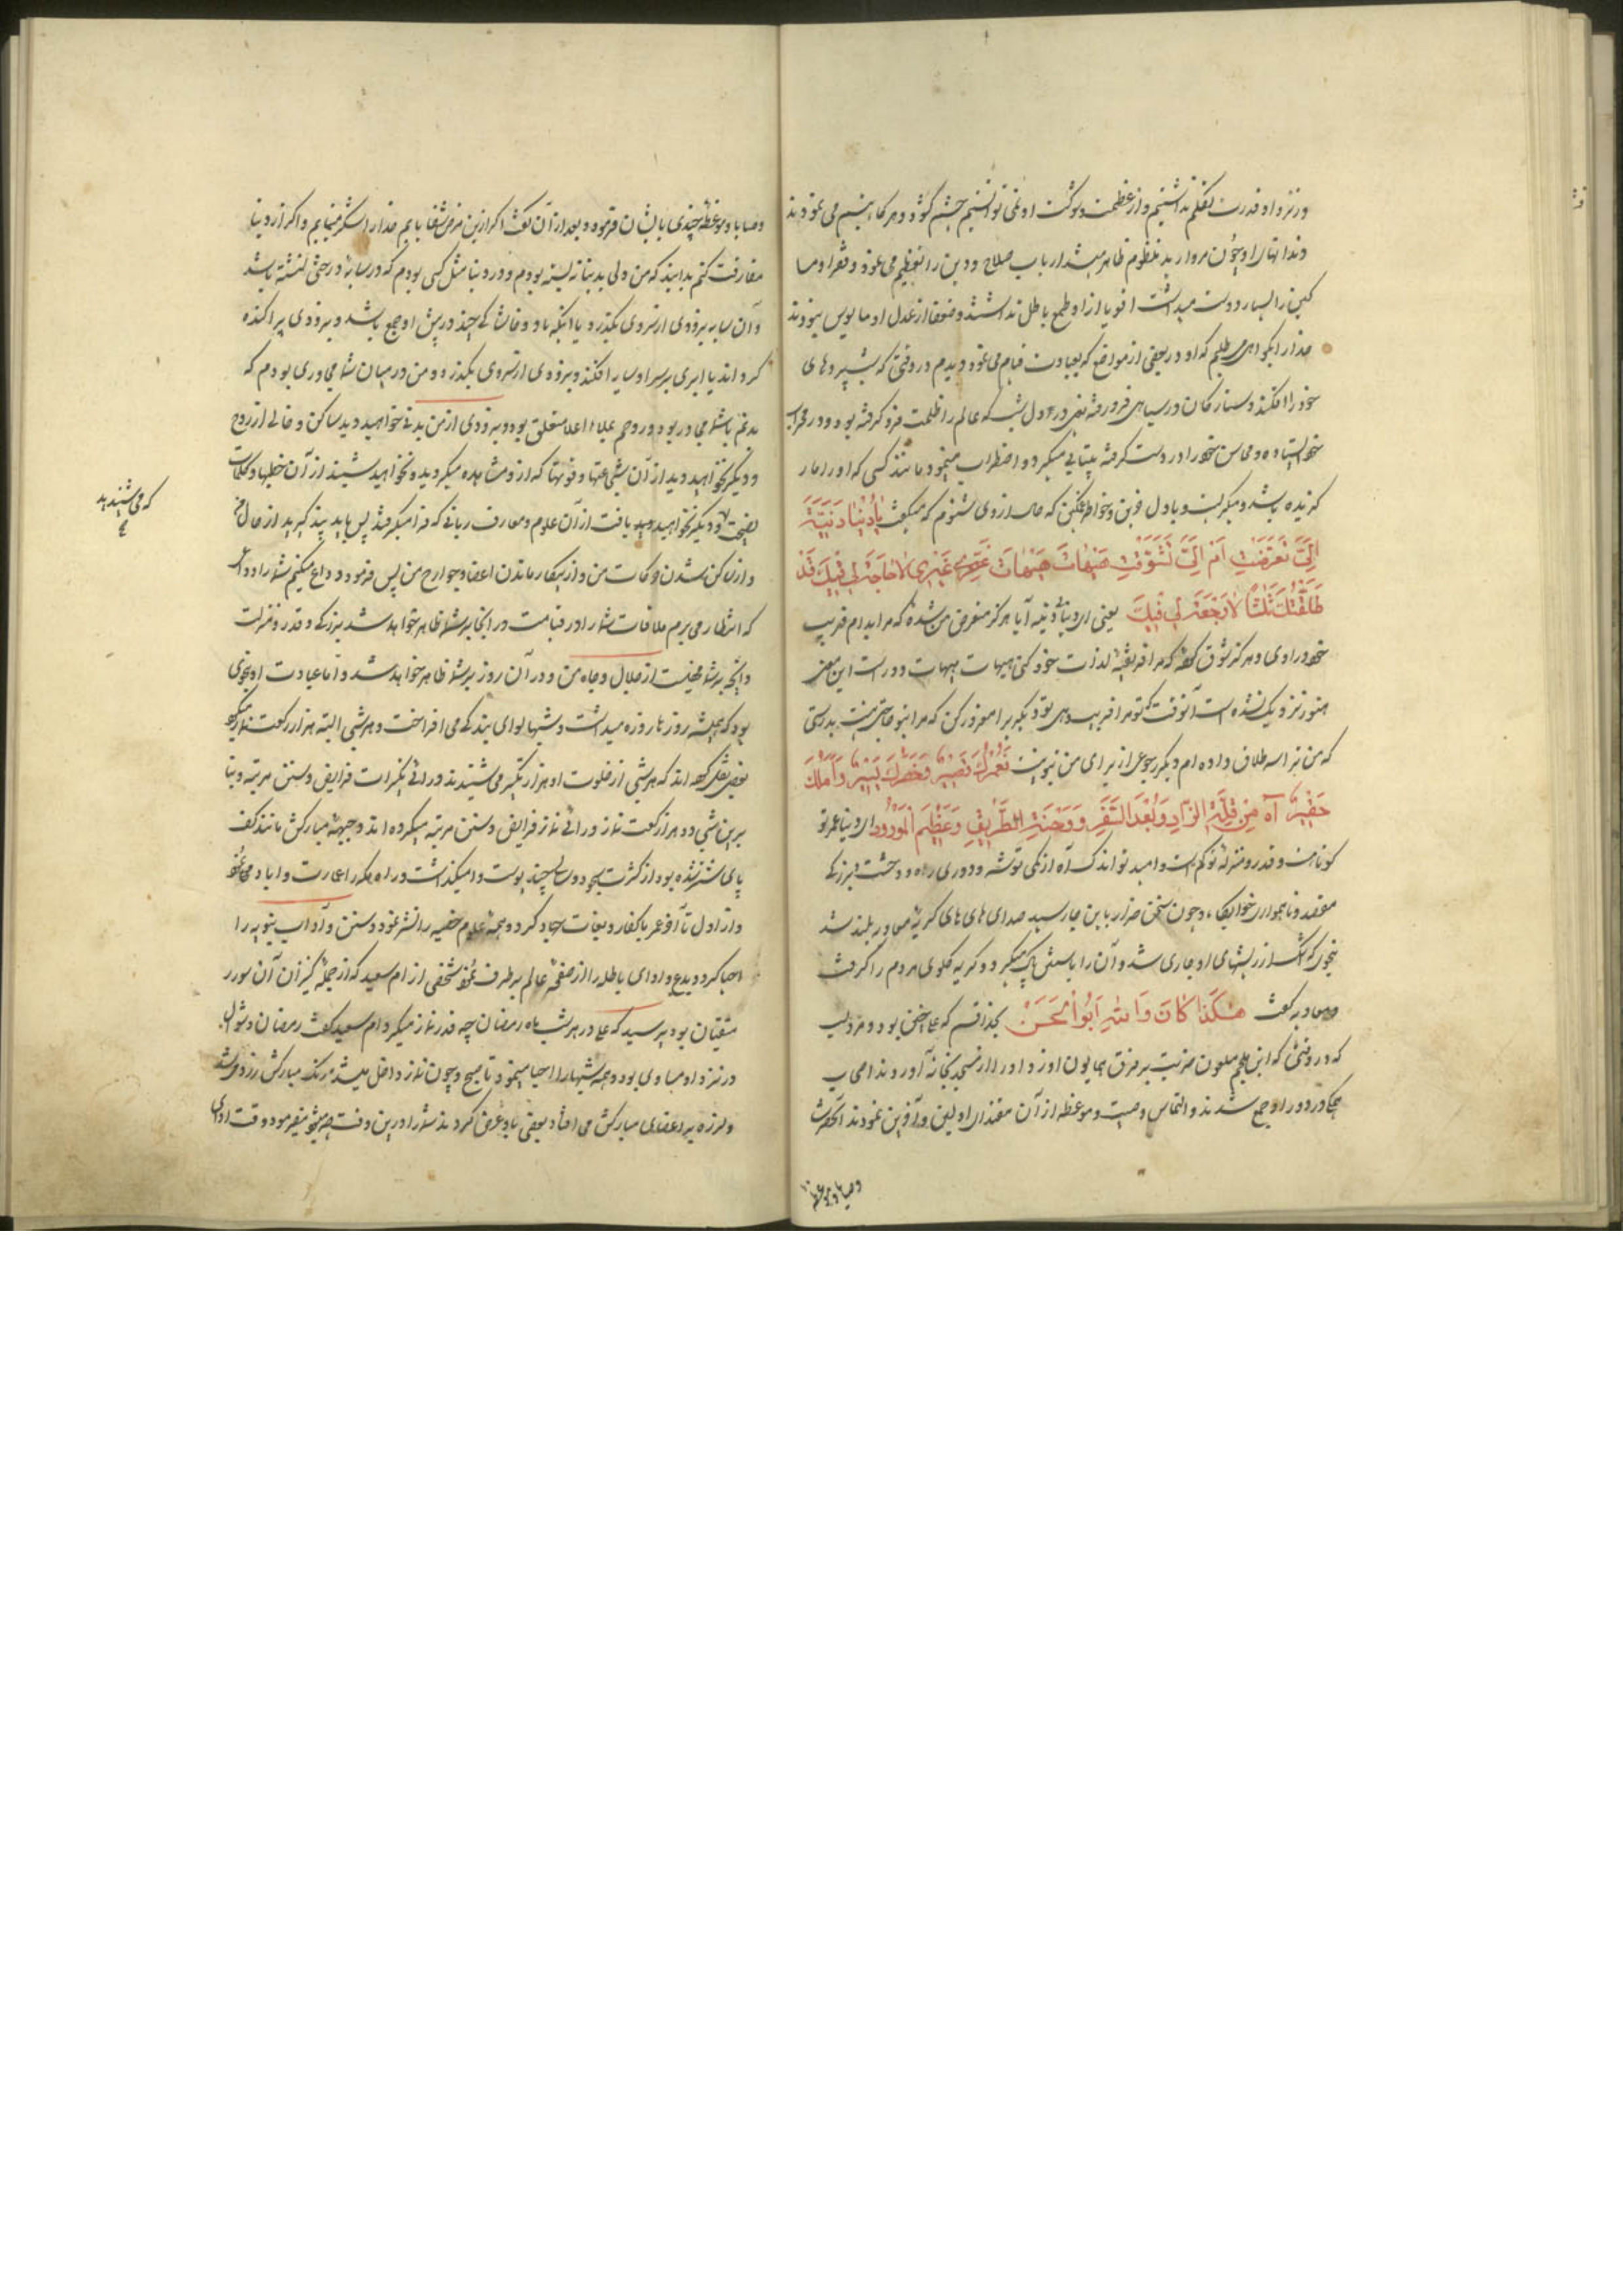 و در نزد او قدرت تکلم نداشتیم و از عظمت و شوکت او نمی توانستیم چشم گشود و هرگاه تبسم می نمود
دندانهای او چون مروارید منظوم ظاهر میشد ارباب صلاح و دین را تعظیم می نمود و فقرا و مسا
کین را بسیار دوست میداشت اقویا از او طمع باطل نداشتند و ضعفا از عدل او مایوس نبودند
خدا را بگواهی می طلبم که او در بعضی از مواضع که بعبادت قیام می نمود دیدم در وقتی که شب پرده های
خود را افکنده و ستارگان در سیاهی فرو رفته یعنی در اول شب که عالم را ظلمت فرو گرفته بود و در محراب
خود ایستاده و محاسن خود را در دست گرفته بیتابی میکرد و اضطراب مینمود مانند کسی که او را مار
گزیده باشد و میگریست و با دل حزین و خواطر غمگین که حال از وی شنودم که میگفت یا دُنْیا دَنِیَّة
اِلَیَّ تَعَرَّضْتِ اَمْ اِلَیَّ تَشَوَّقْتِ هَیْهاتَ هَیْهاتَ غَرِّی غَیْرِی لا حاجَةَ لِی فِیكِ قَدْ
طَلَّقْتُكِ ثَلثًا لا رَجْعَةَ لِی فِیكِ یعنی ای دنیا دنیه آیا هرگز متعرض من شدهٔ که مرا بدام فریب
خود در اوری و هرگز شوق که مرا فریفتهٔ لذت خود کنی هیهات هیهات دور است این معنی
هنوز نزدیک نشده است آنوقت که تو مرا فریب دهی بتو دیگری را مغرور کن که مرا بتو حاجتی نیست بدرستی
که من ترا سه طلاق داده ام و دیگر رجوعی از برای من نیست فَعُمْرُكِ قَصِیرٌ وَ خَطَرُكِ یَسِیرٌ وَ اَمَلُكِ
حَقِیرٌ آهِ مِنْ قِلَّةِ الزّادِ وَ بُعْدِ السَّفَرِ وَ وَحْشَةِ الطَّرِیقِ وَ عَظِیمِ الْمَوْرُودِ ای دنیا عمر تو
کوتاهست و قدر و منزلهٔ تو کم است و امید تو اندک آه از کمی توشه و دوری راه و وحشت و بزرگی
مقصد و ناهمواری خوابگاه و چون سخن ضرار باین جا رسید صدای های های گریهٔ معاویه بلند شد
بنحوی که اشک از ریشهای او جاری شد و آن را با آستین پاک میکرد و گریه گلوی مردم را گرفت
و معاویه گفت هٰکَذا کانَ وَاللهِ اَبُوالْحَسَنِ بخدا قسم که علی چنین بود و مرویست
که در وقتی که ابن ملجم ملعون ضربت بر فرق همایون او زد و او را از مسجد بخانه آوردند اصحاب
جگر در دور او جمع شدند و التماس وصیت و موعظه از آن مقتدای اولین و آخرین نمودند آنحضرت
وصایا و موعظه
وصایا و موعظهٔ چندی بایشان فرموده و بعد از آن گفت اگر ازین مرض شفا یابم خدا را شکر مینمایم و اگر از دنیا
مفارقت کنم بدانید که من دل بدنیا نه بسته بودم و در دنیا مثل کسی بودم که در سایهٔ درختی نشسته باشد
و آن سایه بزودی از سر وی بگذرد یا اینکه باد و خاشاکی چند در پیش او جمع باشد و بزودی پراکنده
گرداند یا ابری بر سر او سایه افکند و بزودی از سر وی بگذرد و من در میان شما مجاوری بودم که
بدنم باشما مجاور بود و روحم بملاء اعلا متعلق بود و بزودی از من بدنی خواهید دید ساکن و خالی از روح
و دیگر نخواهید دید از آن شجاعتها و قوتها که از من مشاهده میکردید و نخواهید شنید از آن خطبها و کلمات
که می شنیدید
نصیحت و دیگر نخواهید یافت از آن علوم و معارف ربانی که فرا میگرفتید پس باید پند گیرید از حال من
و از ساکن شدن حرکات من و از بیکار ماندن اعضا و جوارح من پس فرمود وداع میکنم شما را وداع
که انتظار می برم ملاقات شما را در قیامت در انجا بر شما ظاهر خواهد شد بزرگی و قدر و منزلت
و انچه بر شما مخفیست از جلال و جاه من و در آن روز بر شما ظاهر خواهد شد و اما عبادت او بنحوی
بود که همیشه روزها روزه میداشت و شبها لوای بندگی می افراخت و هر شبی البته هزار رکعت نماز میکرد
بعضی نقل کرده اند که هر شبی از خلوت او هزار تکبیر می شنیدند ورای تکبیرات فرایض و سنن مرتبه و بنا
برین شبی دو هزار رکعت نماز ورای نماز فرایض و سنن مرتبه میکرده اند و جبههٔ مبارکش مانند کف
پای شتر شده بود از کثرت سجود و سالی چند پوست وا میگذاشت
و از اول تا آخر عمر با کفار و بغات جهاد کرد و همه علوم خفیه را نشر نمود و سنن و آداب نبویه را
احیا کرد و بدع و اداب باطله را از صفحهٔ عالم بر طرف نمود شخصی از ام سعید که از جملهٔ کنیزان آن سرور
متقیان بود پرسید که علی در هر شب ماه رمضان چه قدر نماز میکرد ام سعید گفت رمضان و شوال
در نزد او مساوی بود و همه شبها را احیا مینمود تا صبح و چون نماز داخل میشد رنگ مبارکش زرد می شد
و لرزه بر اعضای مبارکش می افتاد بعضی باو عرض کردند شما را درین وقت چه میشود میفرمود وقت ادای